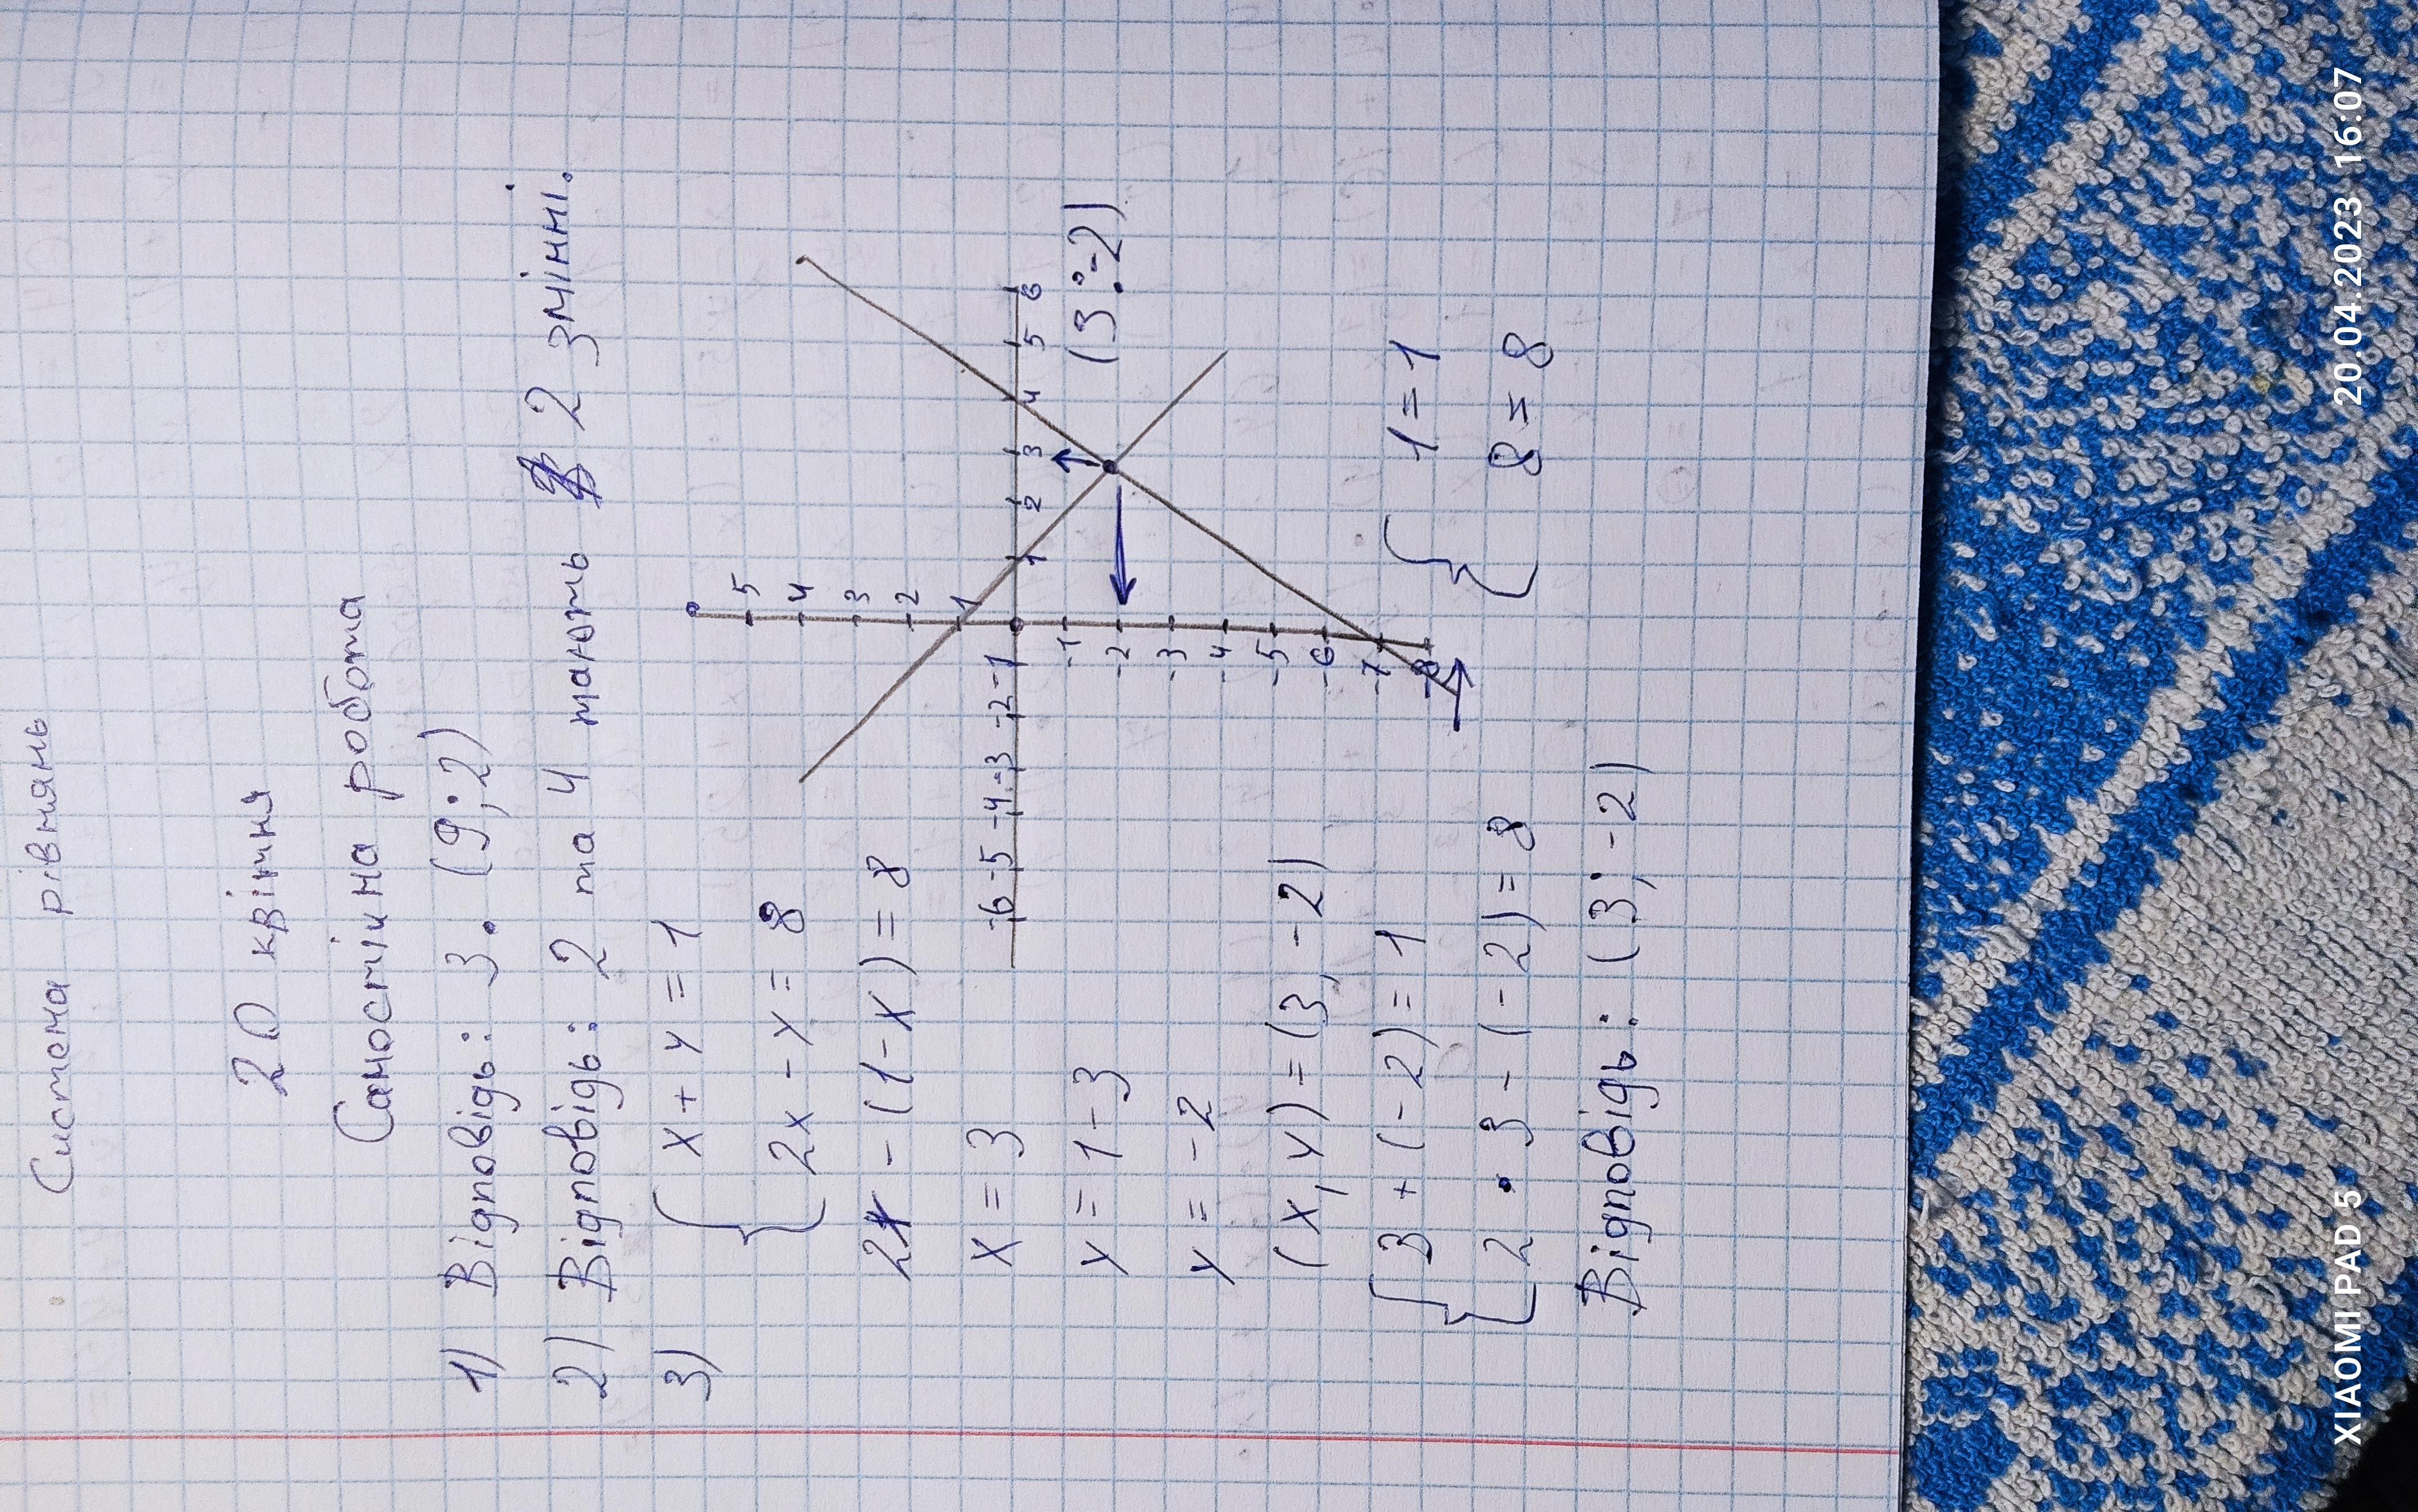 Система рівнянь
20 квітня
Самостійна робота
1) Відповідь: 3. (9; 2)
2) Відповідь: 2 та 4 мають 2 змінні.
3) { x + y = 1
2x - y = 8
2x - (1 - x) = 8
x = 3
y = 1 - 3
y = -2
(x, y) = (3, -2)
{ 3 + (-2) = 1
2 · 3 - (-2) = 8
{ 1 = 1
8 = 8
Відповідь: (3; -2)
5
4
3
2
1
-6 -5 -4 -3 -2 -1 1 2 3 4 5 6
-1
-2
-3
-4
-5
-6
-7
-8
(3 : -2)
XIAOMI PAD 5
20.04.2023 16:07